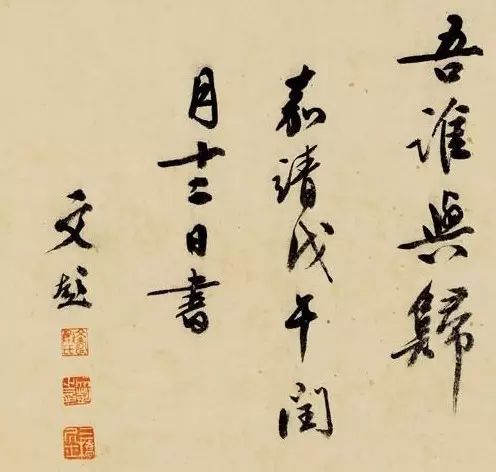 吾誰與歸
嘉靖戊午閏
月十二日書
文彭